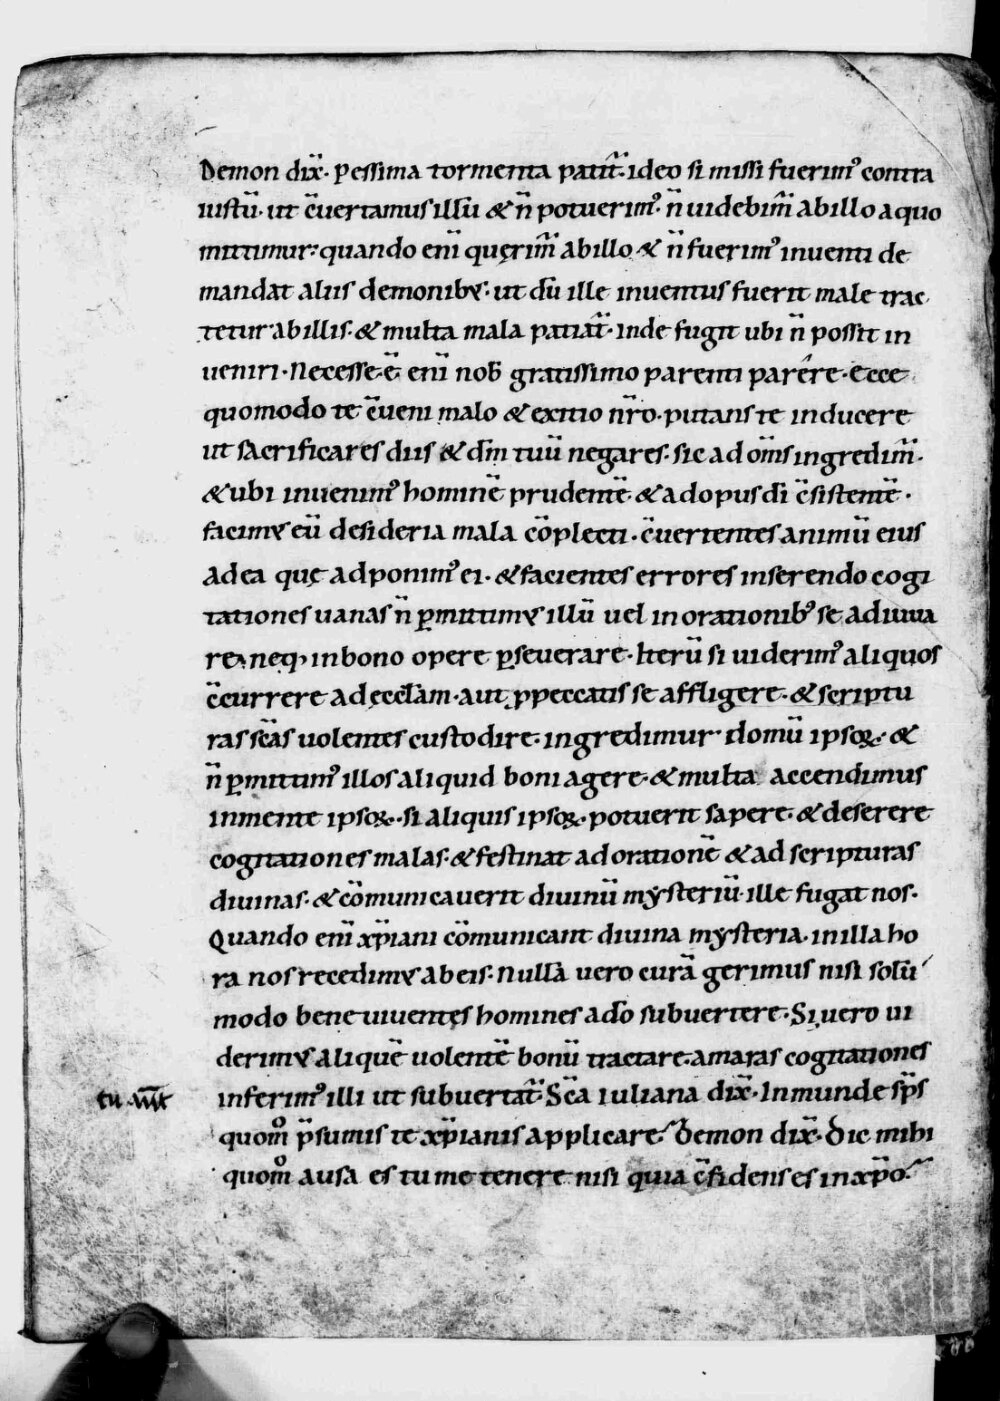 Demon dix̄· pessima tormenta patit̄· ideo si missi fuerim᾽ contra
iustū· ut c̄uertamus illū & n̄ potuerim᾽· n̄ uidebim̄ ab illo a quo
mittimur· quando eni᷑ quęrim̄ ab illo & n̄ fuerim᾽ inuenti de
mandat aliis demonibꝰ· ut dū ille inuentus fuerit male trac
tetur ab illis· & multa mala patiat̄· inde fugit ubi n̄ possit in
ueniri· Necesse ē enī nob̄ gratissimo parenti parēre· Ecce
quomodo te c̄ueni malo & exitio nr̄o· putans te inducere
ut sacrificares diis & dm̄ tuū negares· sic ad om̄s ingredim̄·
& ubi inuenim᾽ hominē prudentē & ad opus dī c̄sistentē·
facimꝰ eū desideria mala cōplecti· c̄uertentes animū eius
ad ea quę adponim᾽ ei· & facientes errores inserendo cogi
tationes uanas n̄ ꝑmittimꝰ illū uel in orationib᾽ se adiuua
re· neq; in bono opere ꝑseuerare· Iterū si uiderim᾽ aliquos
c̄currere ad ęccl̄am· aut ꝓ peccatis se affligere· & scriptu
ras sc̄as uolentes custodire· ingredimur domū ipsoꝝ· &
n̄ ꝑmittim᾽ illos aliquid boni agere· & multa accendimus
in mente ipsoꝝ· si aliquis ipsoꝝ· potuerit sapere· & deserere
cogitationes malas· & festinat ad orationē & ad scripturas
diuinas· & cōmunicauerit diuinū mẏsteriū· ille fugat nos·
Quando enī xp̄iani cōmunicant diuina mẏsteria· in illa ho
ra nos recedimꝰ ab eis· Nullā uero curā gerimus nisi solū
modo bene uiuentes homines a dō subuertere· Si uero ui
derimꝰ aliquē uolentē bonū tractare· amaras cogitationes
inferim᾽ illi ut subuertat̄· Sc̄a iuliana dix̄· Inmunde sp̄s
quom̊ p̄sumis te xp̄ianis applicare· Demon dix̄· Dic mihi
quom̊ ausa es tu me tenere nisi quia c̄fidens es in xp̄o·